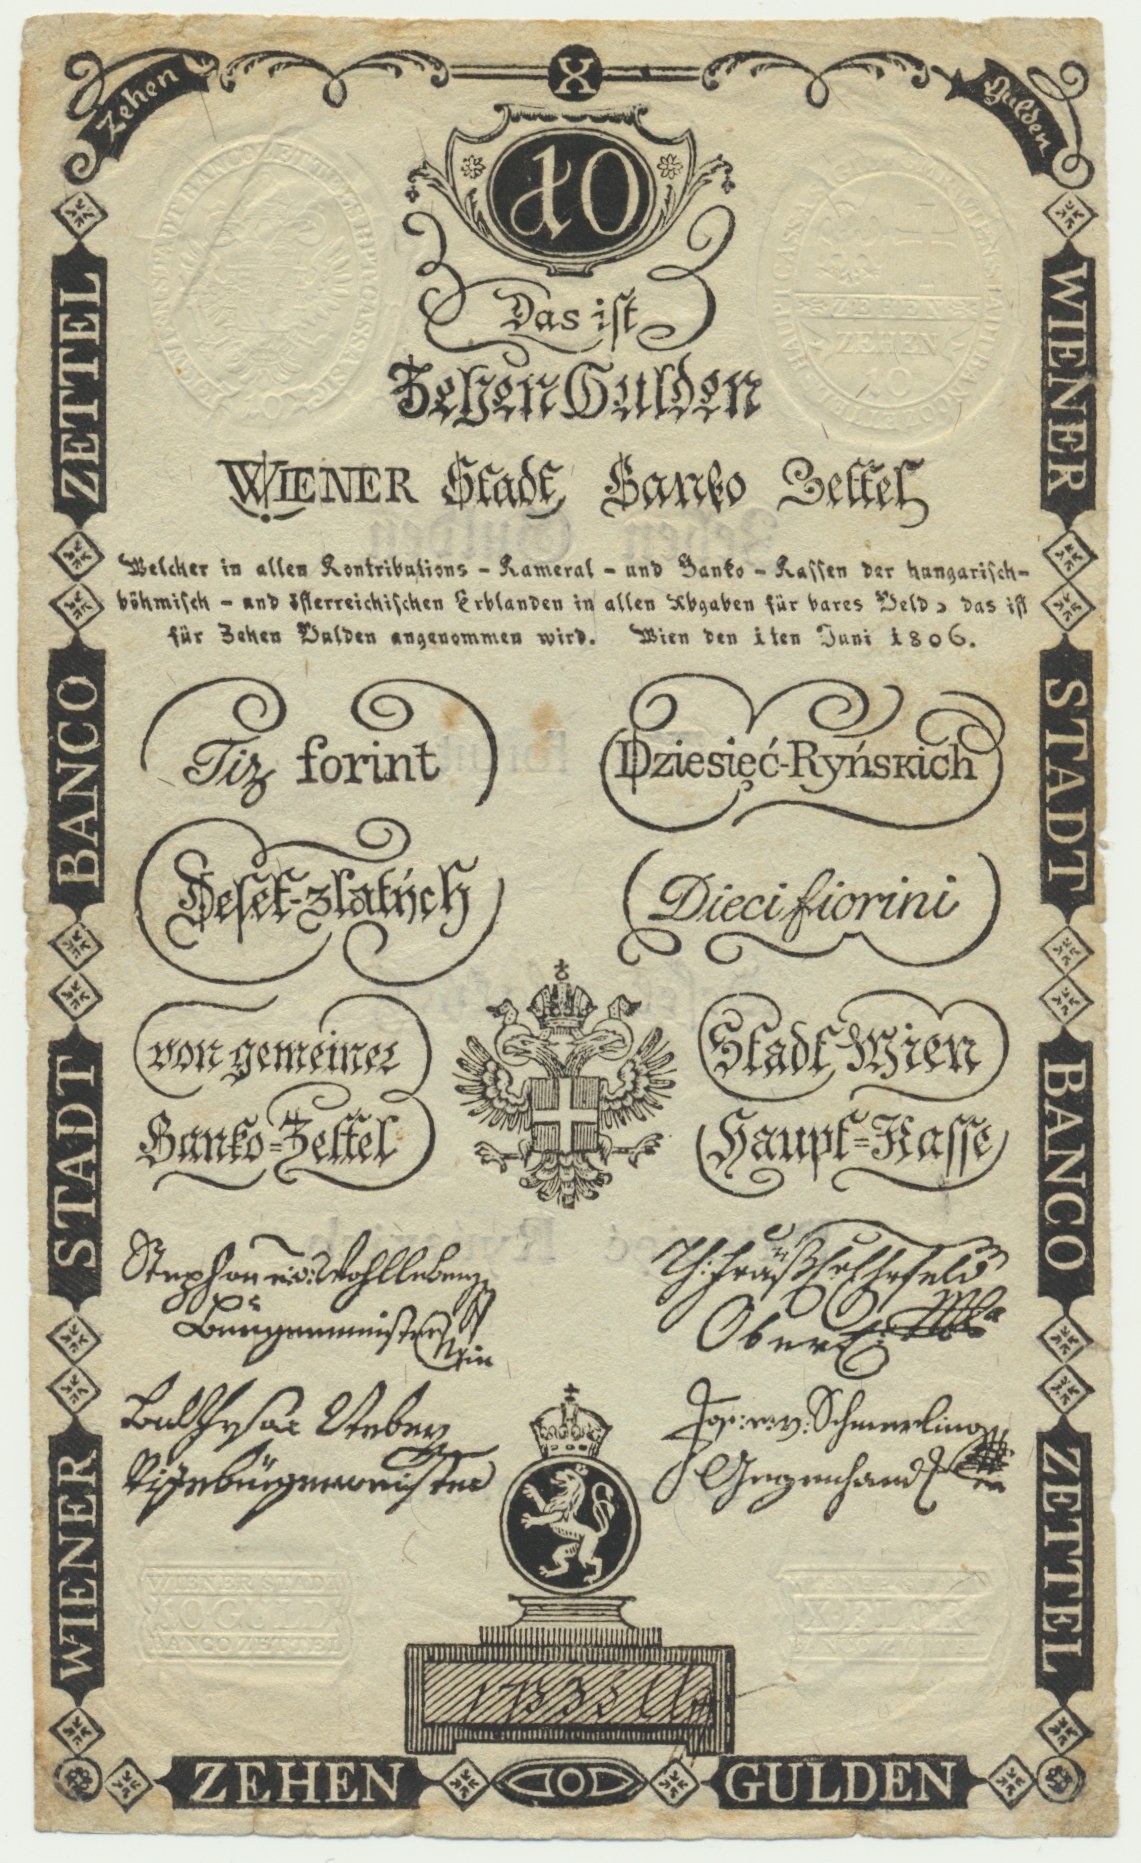 Zehen X Gulden
10
Das iſt
Zehen Gulden
WIENER Stadt Banko Zettel
Welcher in allen Kontributions - Kameral - und Banko - Kaſſen der hungariſch-
böhmiſch - und öſterreichiſchen Erblanden in allen Abgaben für bares Geld, das iſt
für Zehen Gulden angenommen wird. Wien den 1ten Juni 1806.
Tiz forint
Dziesięć-Ryńskich
Deſet-zlatých
Dieci fiorini
von gemeiner Stadt Wien
Banko=Zettel Haupt=Kaſſe
WIENER STADT BANCO ZETTEL
WIENER STADT BANCO ZETTEL
WIENER STADT
10 GULD
BANCO ZETTEL
WIENER STADT
X FLOR
ZEHEN
ZEHEN
10
ZEHEN GULDEN